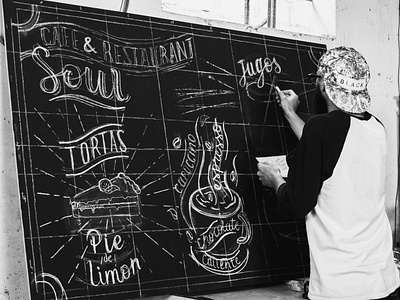 CAFE & RESTAURANT
Soul
TORTAS
Pie
de
Limon
capuccino
espresso
chocolate
caliente
Jugos
BLACK